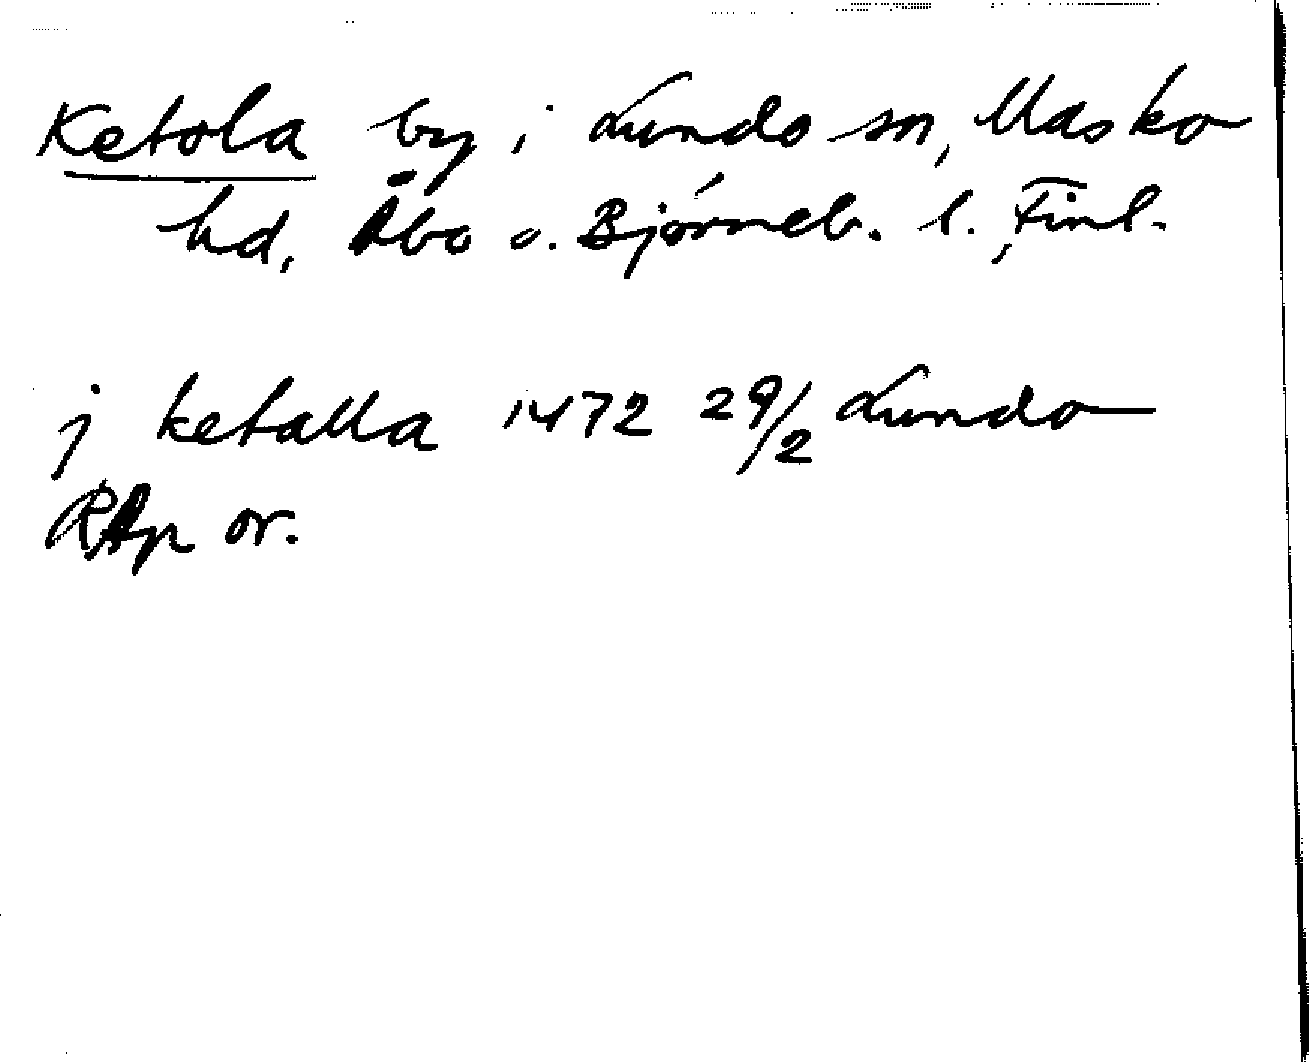 Ketola by i Lundo sn, Masko
hd, Åbo o. Björneb. l., Finl.
j ketalla 1472 29/2 Lundo
RAp or.